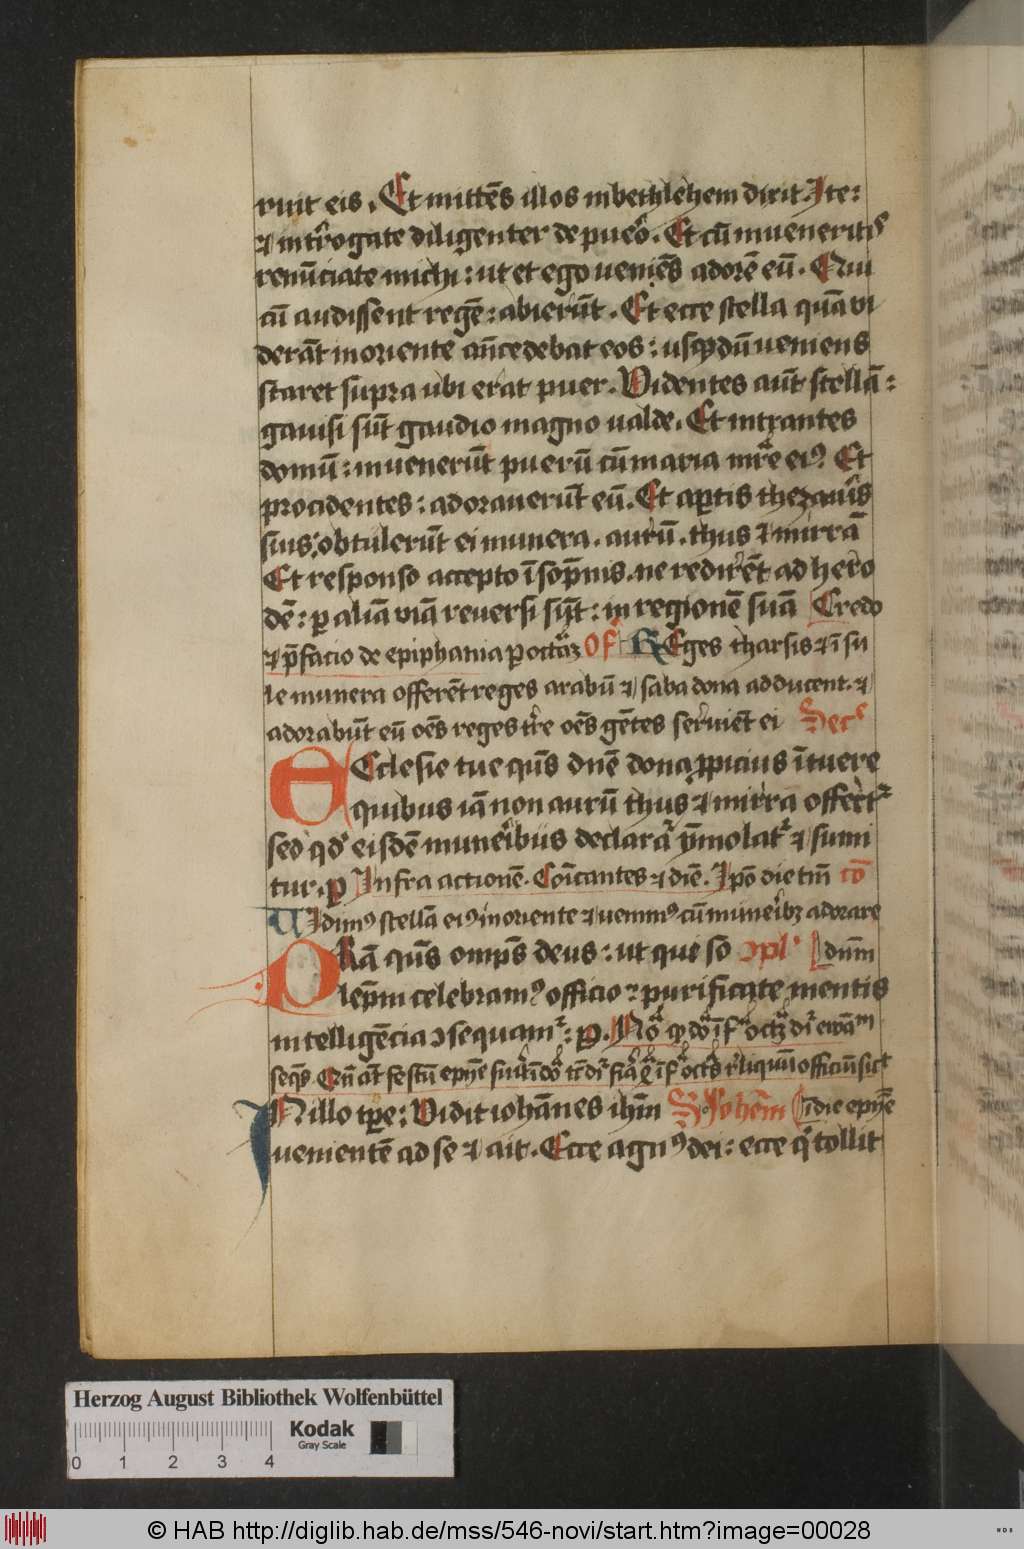 ruit eis. Et mittēs illos in bethlehem dixit. Ite:
⁊ int̄rogate diligenter de pueͦ. Et cū inueneritis
renūciate michi: ut et ego veniēs adorē eū. Qui
cū audissent regē: abierūt. Et ecce stella quā vi
derāt in oriente añcedebat eos: usqꝫ dū veniens
staret supra ubi erat puer. Videntes aūt stellā:
gauisi sūt gaudio magno ualde. Et intrantes
domū: inuenerūt puerū cū maria mr̄e eiꝰ Et
procidentes: adorauerūt eū. Et aꝑtis thezauris
suis: obtulerūt ei munera. aurū. thus ⁊ mirrā
Et responso accepto ī sop̄nis. ne redirēt ad hero
dē: ꝑ aliā viā reuersi sūt: in regionē suā Credo
⁊ p̄facio de epiphania ꝑ octaȝ Of Reges tharsis ⁊ ī su
le munera offerēt reges arabū ⁊ saba dona adducent. ⁊
adorabūt eū oēs reges tr̄re oēs gētes seruiēt ei Secᵉ
Ecclesie tue qūs dnē dona ꝓpicius ītuere
quibus iā non aurū thus ⁊ mirra offertᷣ
sed qd̓ eisdē muneribus declaraᷣ ymolatᷣ ⁊ sumi
tur. ꝑ Infra actionē. Cōicantes ⁊ diē. Ip̄o die tm̄ cō
Vidimꝰ stellā eiꝰ in oriente ⁊ venimꝰ cū muneribȝ adorare
PRā qūs omp̄s deus: ut que so ꝯpl̓ dnm̄
lep̄ni celebramꝰ officio: purificate mentis
intelligēcia ꝯsequamᷣ: ꝑ. Nōͣ
seqͥs.
IN illo tꝑe: Vidit iohānes ihm̄ S Iohēm īdie epyͥe
uenientē ad se ⁊ ait. Ecce agnꝰ dei: ecce qͥ tollit
Herzog August Bibliothek Wolfenbüttel
Kodak
Gray Scale
0 1 2 3 4
© HAB http://diglib.hab.de/mss/546-novi/start.htm?image=00028